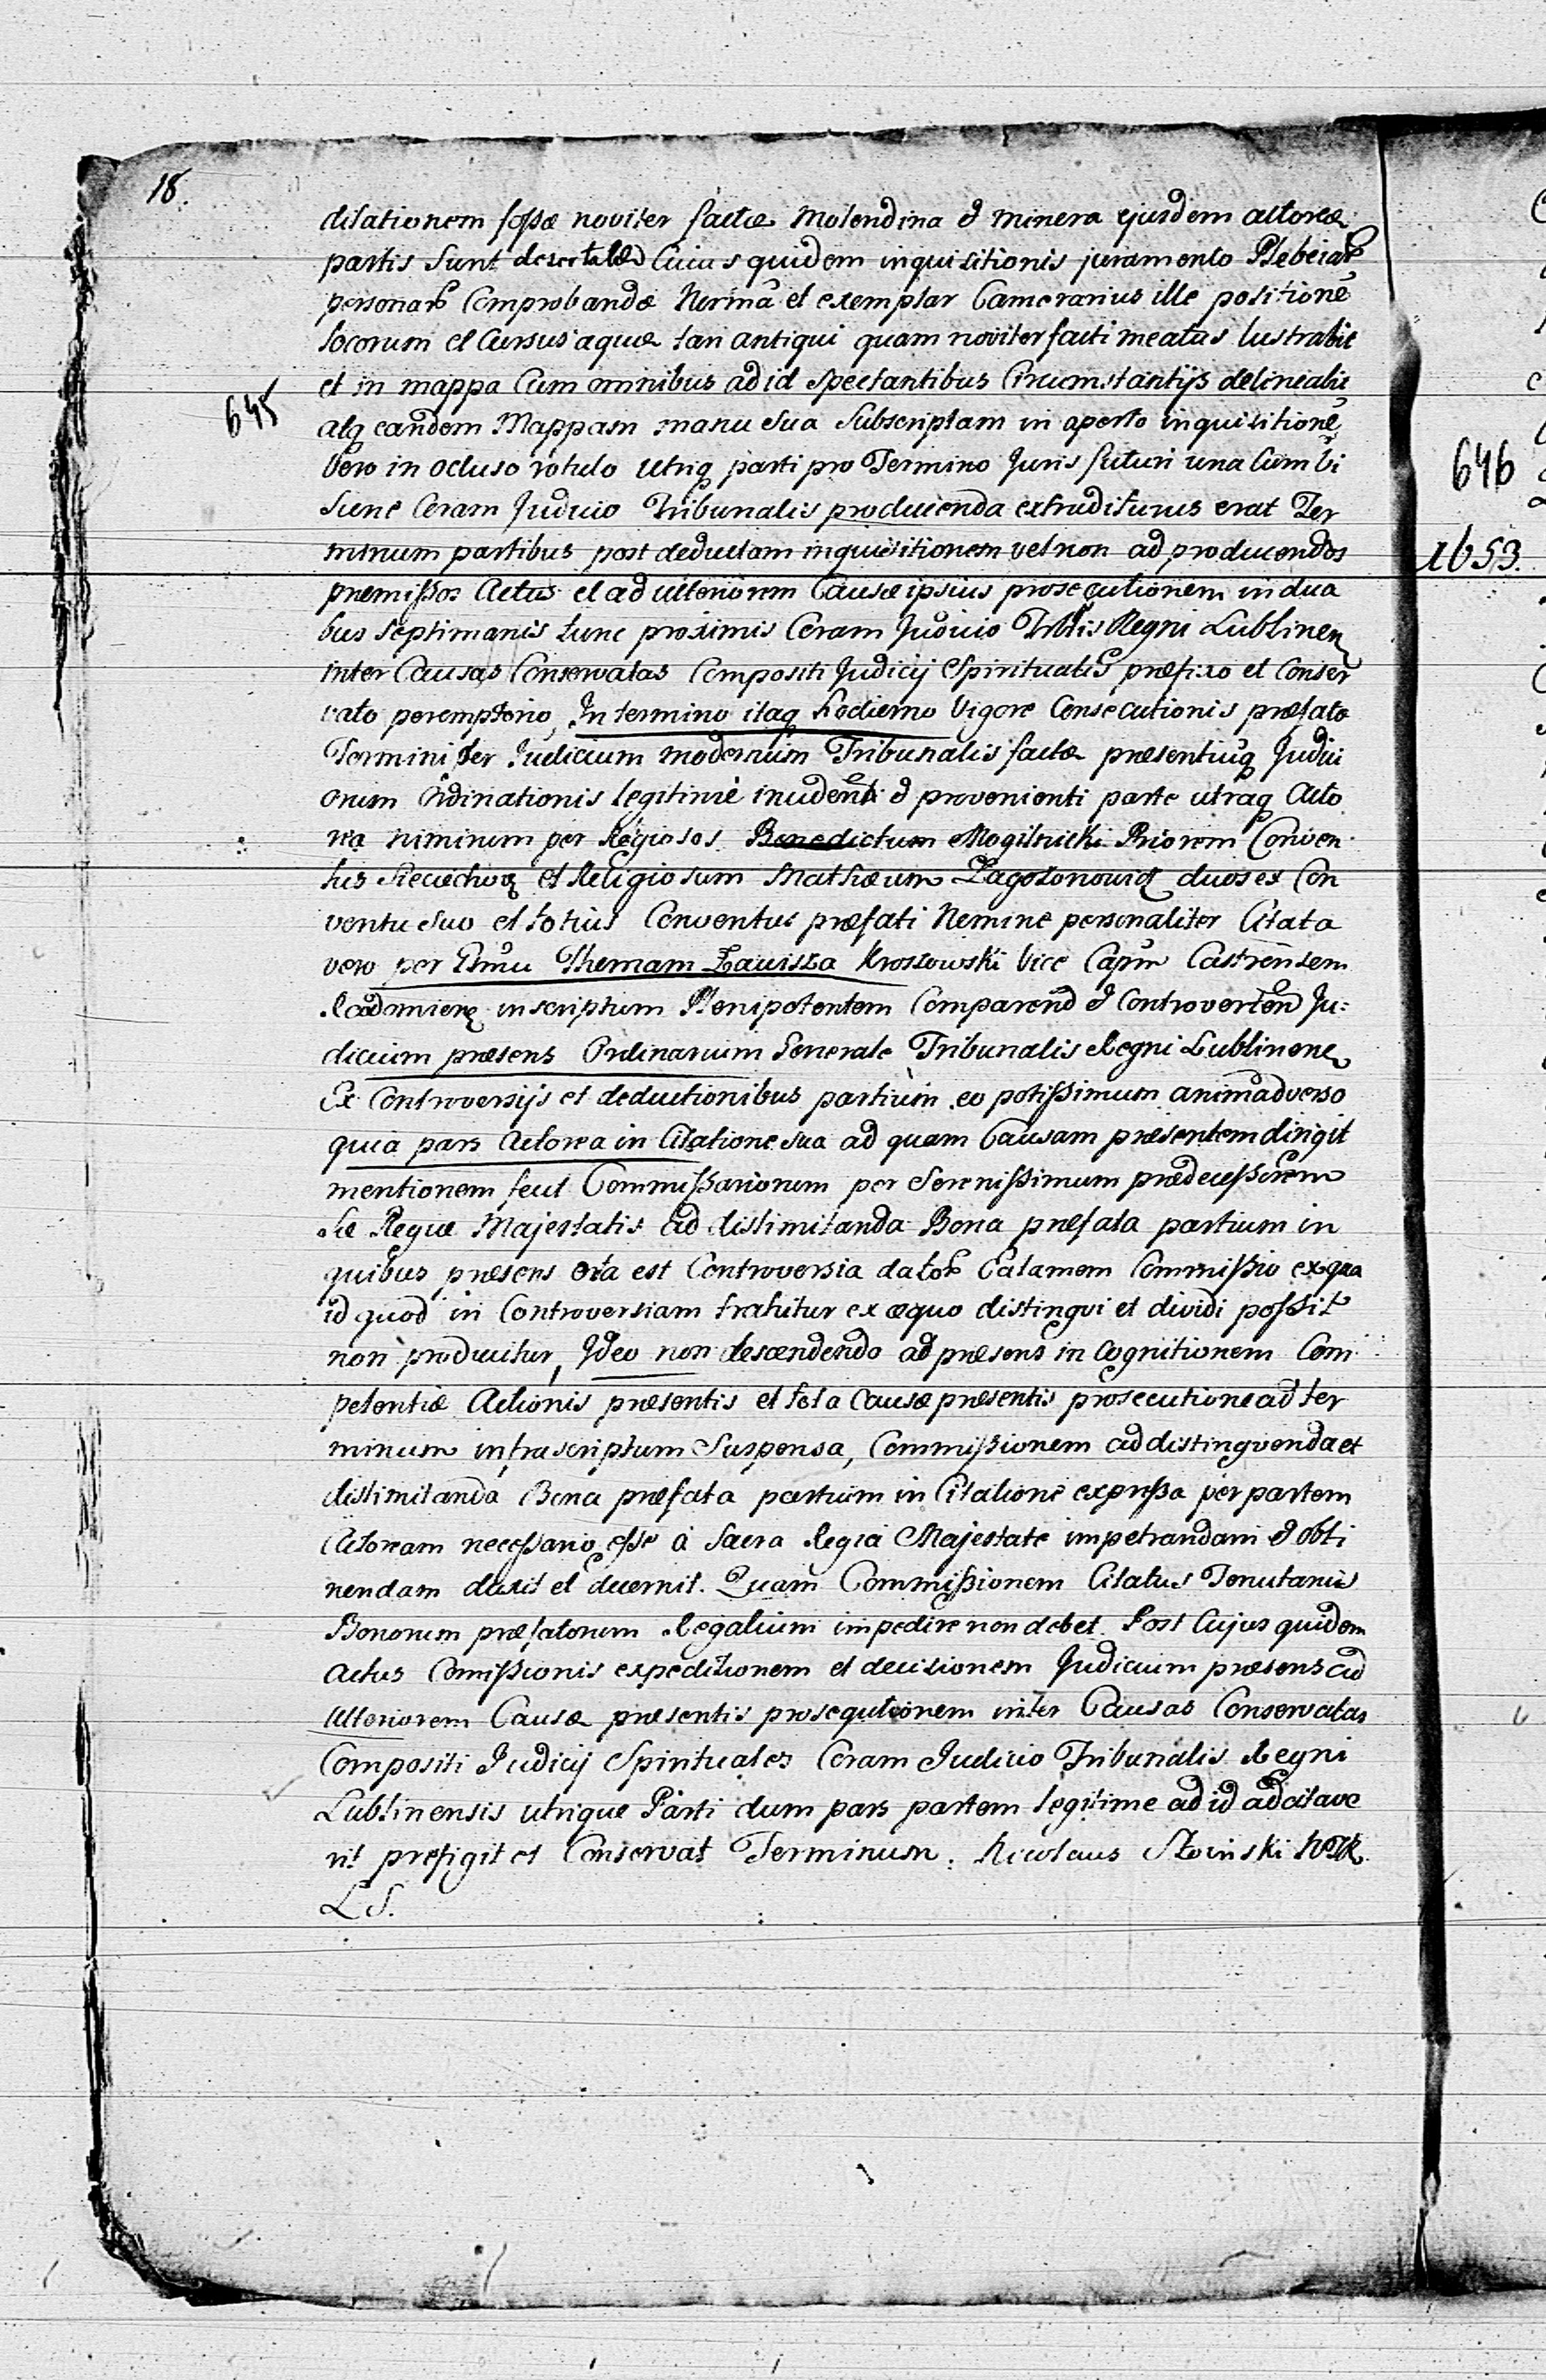 18.
dilationem fossæ noviter factæ Molendina et minera ejusdem actoreæ
partis sunt desertata Cuius quidem inquisitionis juramento Plebeiar
personar Comprobandæ Normã et exemplar Camerarius ille positionẽ
locorum et Cursus aquæ tam antiqui quam noviter facti meatus lustrabit
et in mappa Cum omnibus ad id spectantibus Circumstantijs delineabit
645
atq eandem Mappam manu sua Subscriptam in aperto inquisitionẽ
Vero in ocluso rotulo utriq parti pro Termino Juris futuri una Cum
tunc Coram Judicio Tribunalis producenda extraditurus erat Ter
minum partibus post deductam inquisitionem vel non ad producendos
præmissos Actus et ad ulteriorem Causæ ipsius prosequtionem in dua
bus septimanis tunc proximis Coram Judicio Trblis Regni Lublinen
inter Causas Conservatas Compositi Judicij Spiritualis præfixo et Conser
vato peremptorio, In termino itaq hodierno Vigore Consecutionis præfato
Termini per Judicium modernum Tribunalis factæ præsentiuq Judici
orum Ordinationis legitimè incidenti et provenienti parte utraq Acto
rea nimirum per Rēgiosos Benedictum Mogilnicki Priorem Conven
tus Sieciechov et Religiosum Mathæum duos ex Con
ventu suo et totius Conventus præfati Nemine personaliter Citata
vero per Thomam Zawisza Kroszowski Vice Capũ Castrensem
Radomien inscriptum Plenipotentem Comparend et Controverten Ju:
dicium præsens Ordinarium Generale Tribunalis Regni Lublinen
Ex Controversijs et deductionibus partium eo potissimum animadverso
quia pars Actorea in Citatione sua ad quam Causam præsentem dirigit
mentionem fecit Commissariorum per Serenissimum prædecessorem
Sæ Regiæ Majestatis ad distimitanda Bona præfata partium in
quibus præsens orta est Controversia dator Tamen Commissio ex qua
id quod in Controversiam trahitur ex æquo distingvi et dividi possit
non producitur, Ideo non descendendo ad præsens in Cognitionem Com
petentiæ Actionis præsentis et tota Causæ præsentis prosecutione ad ter
minum infrascriptum Suspensa, Commissionem ad distingvenda et
distimitanda Bona præfata partium in Citatione expressa per partem
Actoream necessario esse à Sacra Regia Majestate impetrandam et obti
nendam dicit et decernit. Quam Commissionem Citatus Tenutarius
Bonorum præfatorum Regalium impedire non debet. Post Cujus quidem
actus Comissionis expeditionem et decisionem Judicium præsens ad
ulteriorem Causæ præsentis prosequtionem inter Causas Conservatas
Compositi Judicij Spirituales Coram Judicio Tribunalis Regni
Lublinensis utrique Parti dum pars partem legitime ad id adcitave
rit prefigit et Conservat Terminum. Nicolaus Słoinski
L S.
646
1653.